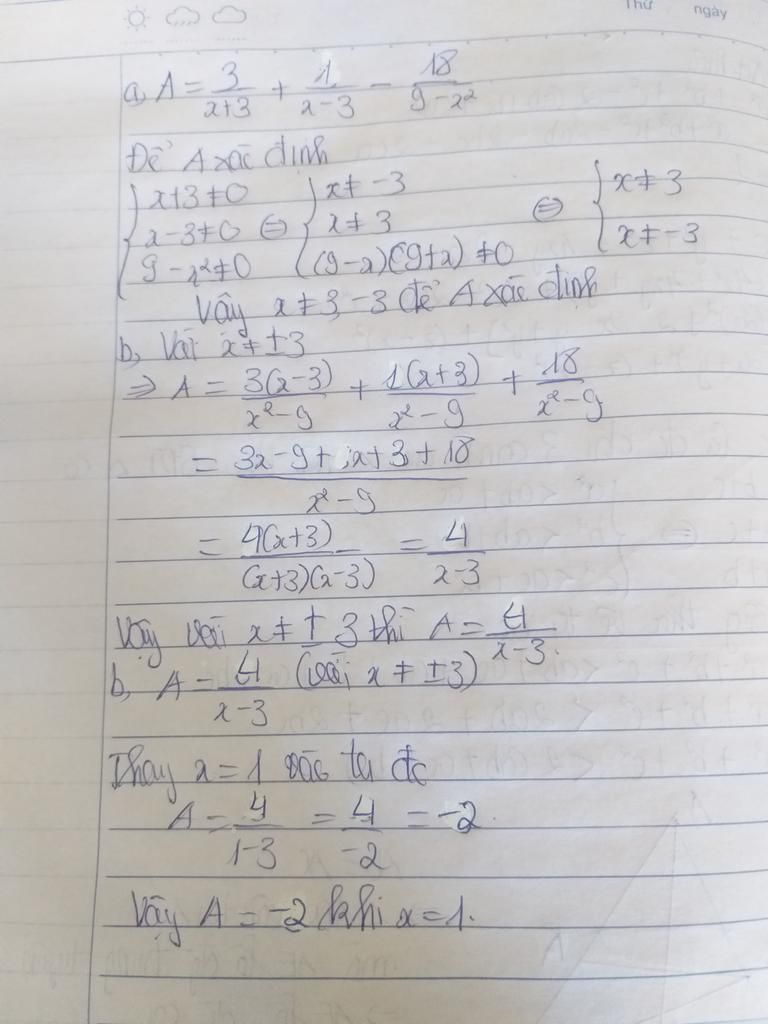 Thứ ngày
a, A = 3/(x+3) + 1/(x-3) - 18/(9-x²)
Để A xác định
{ x+3≠0 { x≠-3 { x≠3
x-3≠0 ⇔ x≠3 ⇔ x≠-3
9-x²≠0 (9-x)(9+x)≠0
Vậy x≠3,-3 để A xác định
b, Với x≠±3
⇒ A = 3(x-3)/(x²-9) + 1(x+3)/(x²-9) + 18/(x²-9)
= (3x-9+x+3+18)/(x²-9)
= 4(x+3)/((x+3)(x-3)) = 4/(x-3)
Vậy với x≠±3 thì A = 4/(x-3).
b, A = 4/(x-3) (với x≠±3)
Thay x=1 vào ta đc
A = 4/(1-3) = 4/(-2) = -2.
Vậy A = -2 khi x=1.